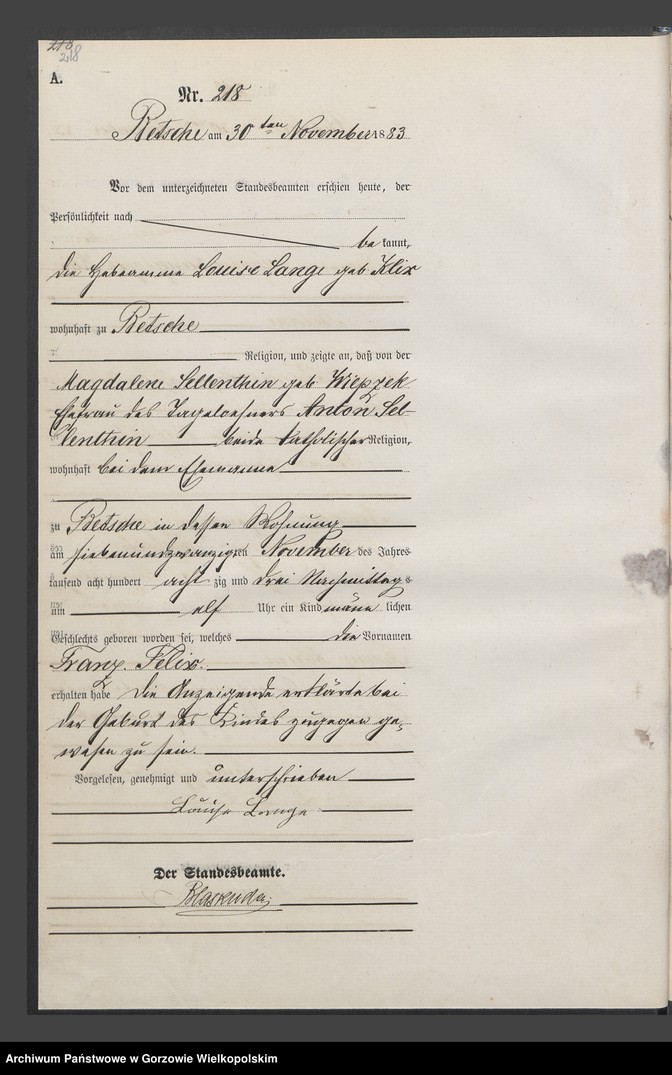 218
218
A.
Nr. 218
Betsche am 30ten November 1883
Vor dem unterzeichneten Standesbeamten erschien heute, der
Persönlichkeit nach
bekannt,
die Hebeamme Louise Lange geb Klix
wohnhaft zu Betsche
Religion, und zeigte an, daß von der
Magdalene Sellenthin geb
Ehefrau des Tageloehners Anton Sel-
lenthin beide katholischer Religion,
wohnhaft bei dem Ehemanne
zu Betsche in dessen Wohnung
am siebenundzwanzigsten November des Jahres
tausend acht hundert achtzig und drei Nachmittags
um elf Uhr ein Kind männlichen
Geschlechts geboren worden sei, welches die Vornamen
Franz Felix.
erhalten habe Die Anzeigende erklärte bei
der Geburt des Kindes zugegen ge-
wesen zu sein.
Vorgelesen, genehmigt und unterschrieben
Louise Lange
Der Standesbeamte.
Archiwum Państwowe w Gorzowie Wielkopolskim